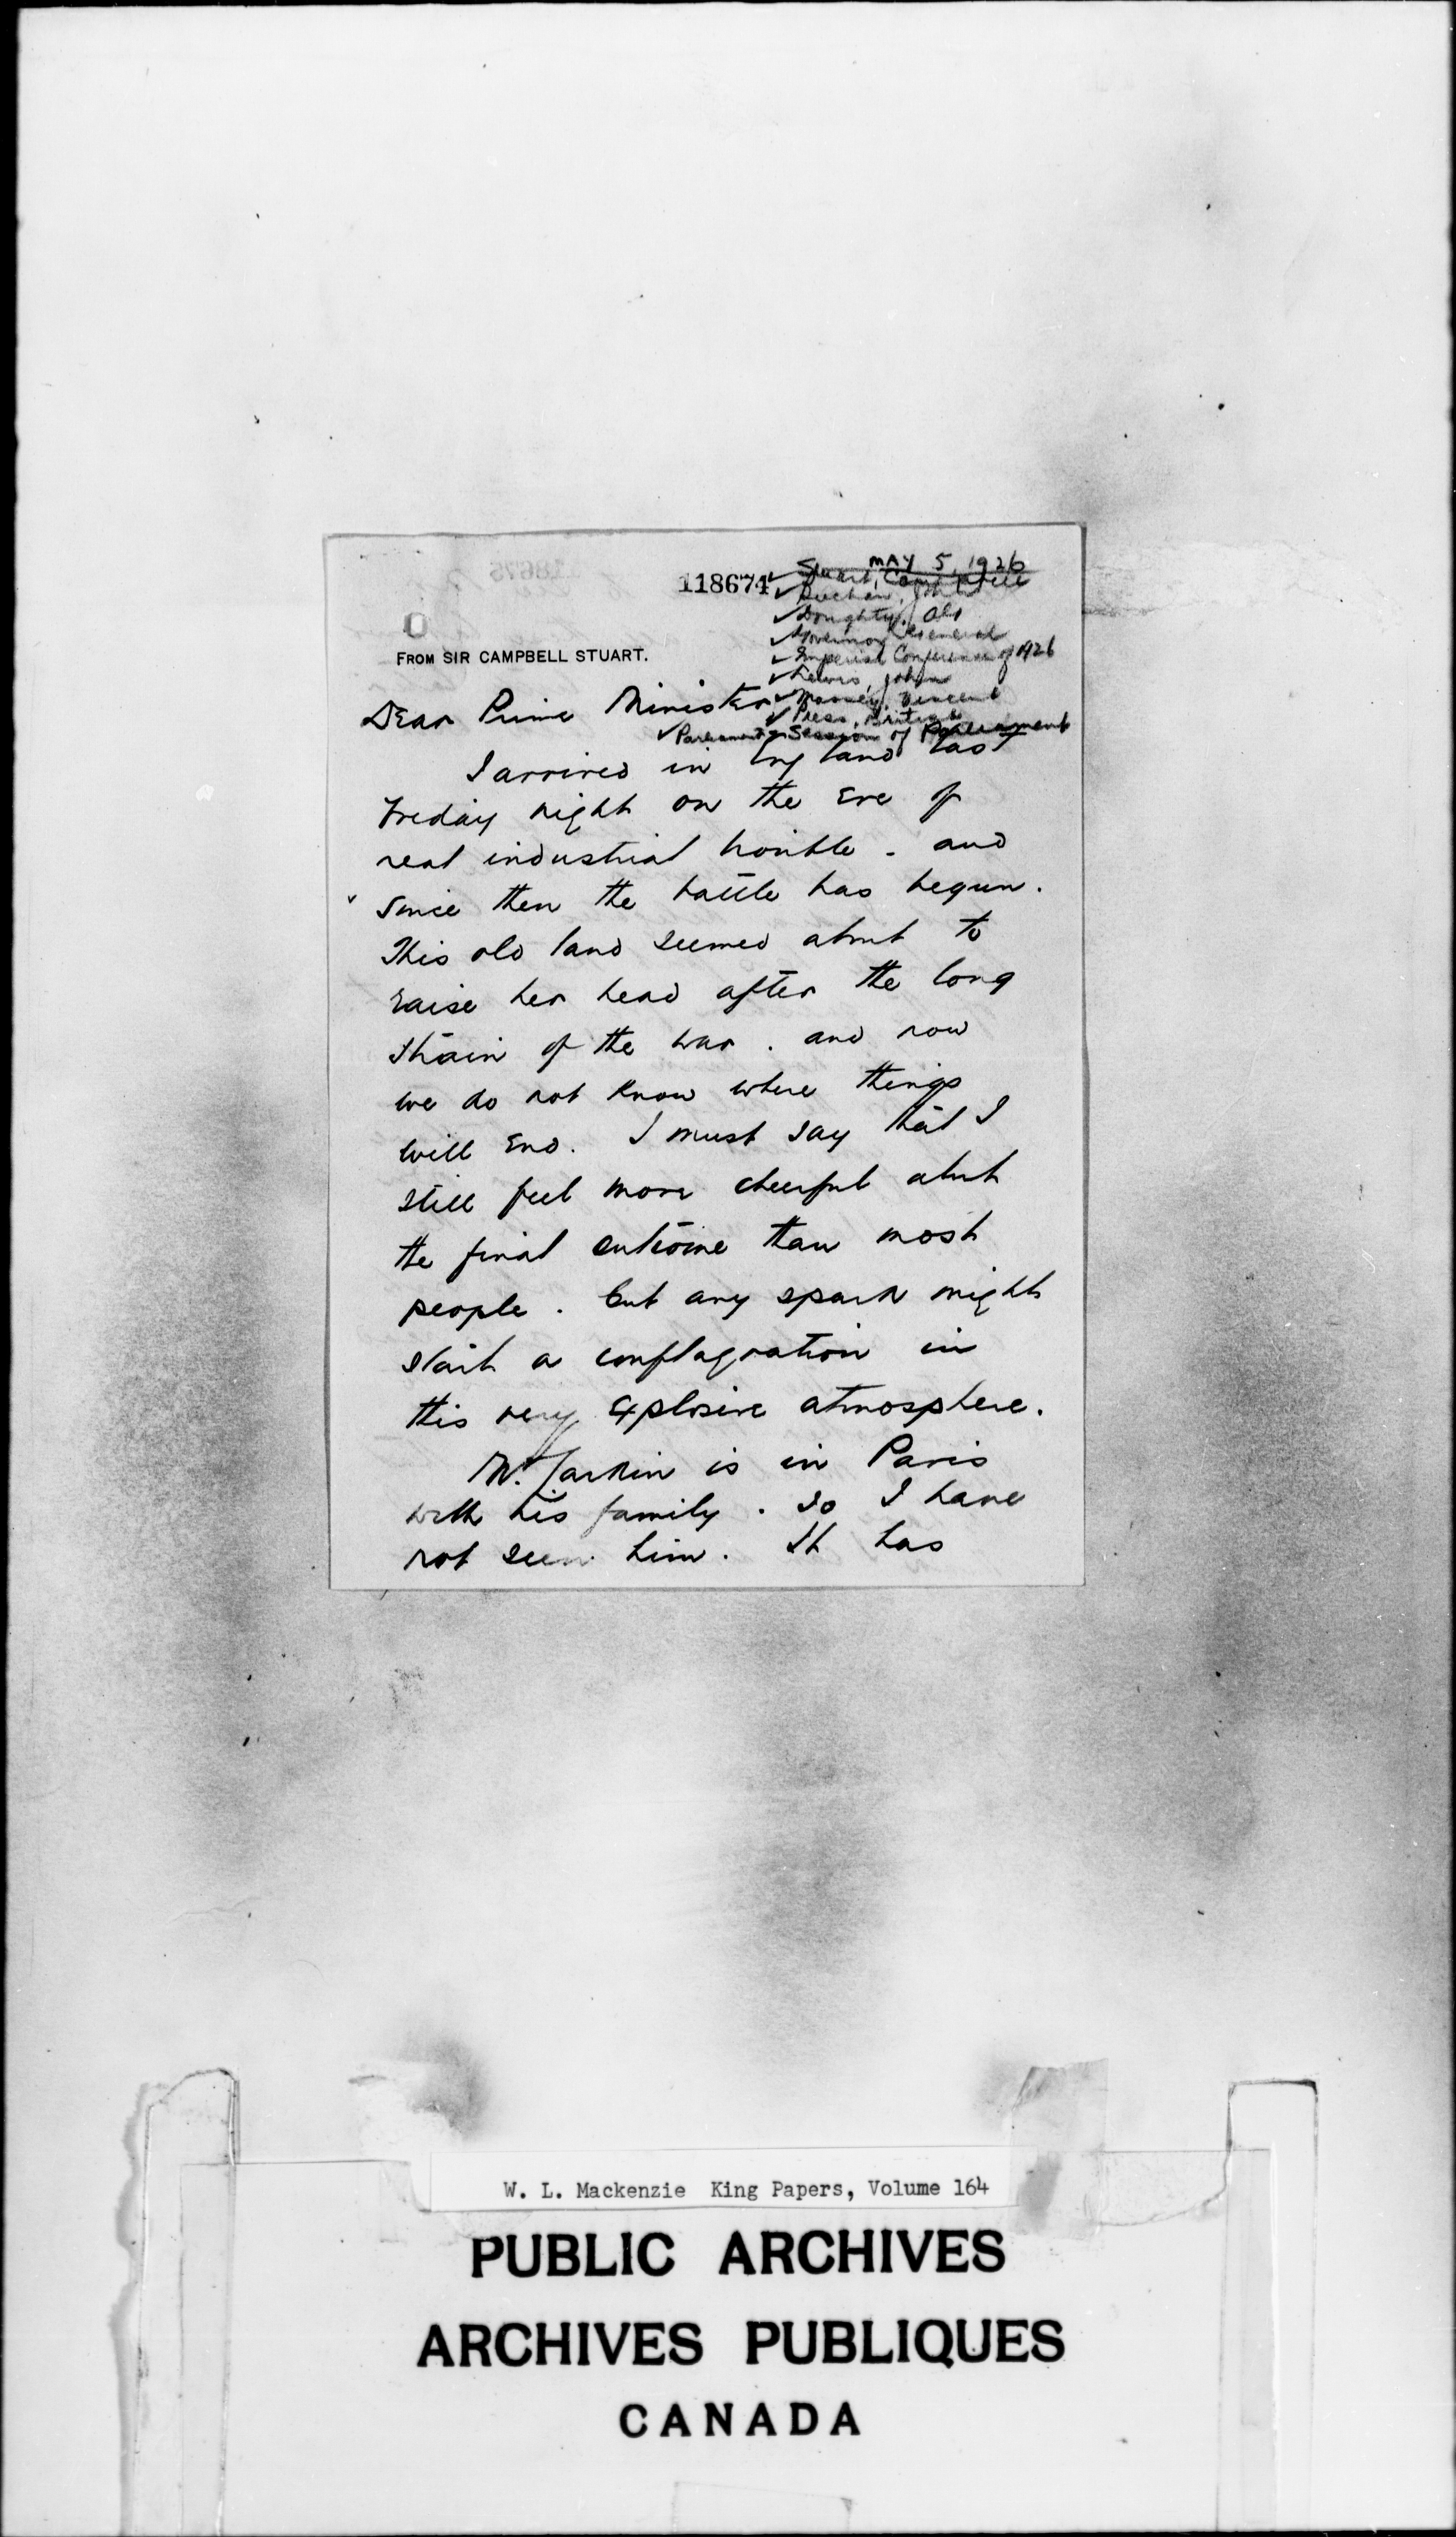 MAY 5, 1926
118674
✓ Stuart, Campbell
✓ Buchan, John
✓ Doughty,
✓ Governor General
✓ Imperial Conference of 1926
✓ Lewis, John
✓ Massey, Vincent
✓ Press, British
✓ Parliament - Session of Parliament
FROM SIR CAMPBELL STUART.
Dear Prime Minister
I arrived in England last
Friday night on the eve of
real industrial trouble - and
since then the battle has begun.
This old land seemed about to
raise her head after the long
strain of the war. and now
we do not know where things
will end. I must say that I
still feel more cheerful about
the final outcome than most
people. but any spark might
start a conflagration in
this very explosive atmosphere.
Mr. Larkin is in Paris
with his family. so I have
not seen him. It has
W. L. Mackenzie King Papers, Volume 164
PUBLIC ARCHIVES
ARCHIVES PUBLIQUES
CANADA